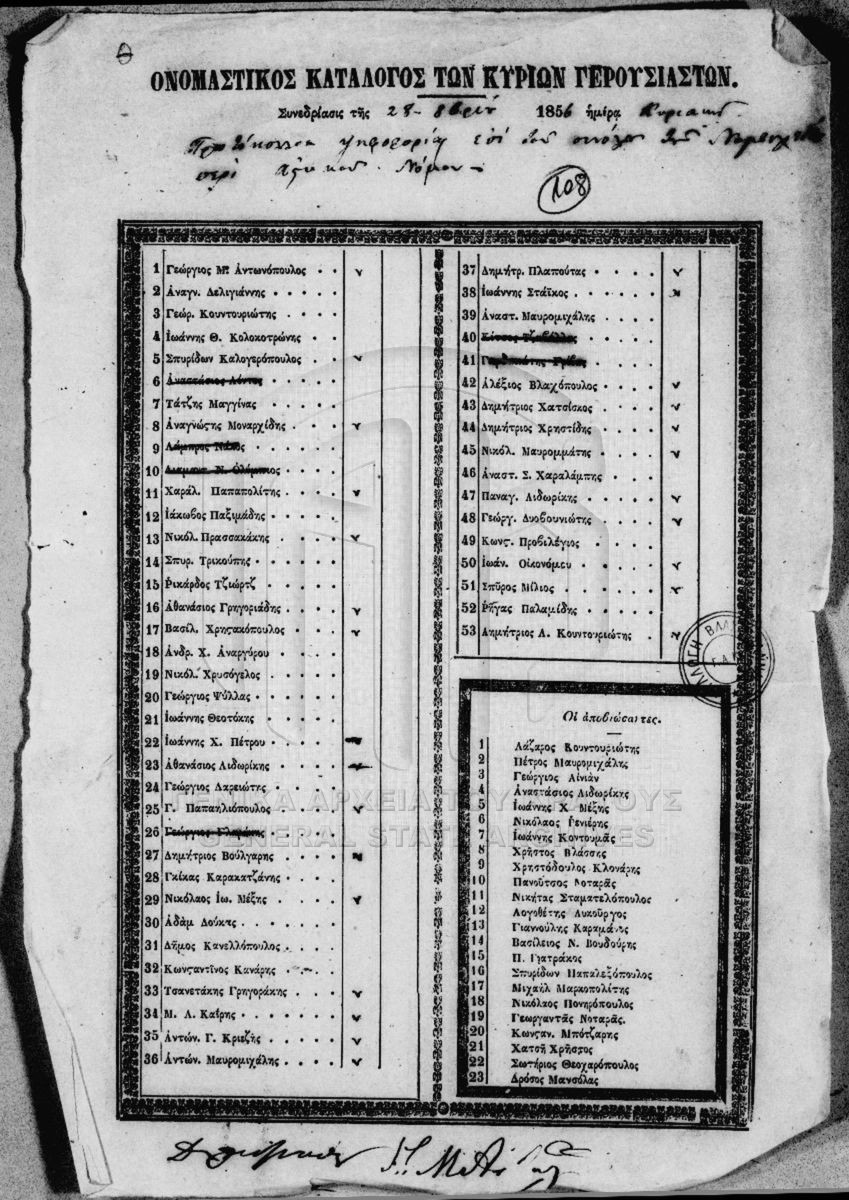 ΟΝΟΜΑΣΤΙΚΟΣ ΚΑΤΑΛΟΓΟΣ ΤΩΝ ΚΥΡΙΩΝ ΓΕΡΟΥΣΙΑΣΤΩΝ.
Συνεδρίασις τῆς 28 8βρίου 1856 ἡμέρᾳ Κυριακῇ
ψηφοφορία ἐπὶ τοῦ συνόλου τοῦ
περὶ Νόμου
108
1 Γεώργιος Μ. Ἀντωνόπουλος
2 Ἀναγν. Δελιγιάννης
3 Γεώρ. Κουντουριώτης
4 Ἰωάννης Θ. Κολοκοτρώνης
5 Σπυρίδων Καλογερόπουλος
6 Ἀναστάσιος Λόντος
7 Τάτζης Μαγγίνας
8 Ἀναγνώςης Μοναρχίδης
9 Λάμπρος Νάκος
10 Διαμαντ. Ν. Ὀλύμπιος
11 Χαράλ. Παπαπολίτης
12 Ἰάκωβος Παξιμάδης
13 Νικόλ. Πρασσακάκης
14 Σπυρ. Τρικούπης
15 Ῥικάρδος Τζιώρτζ
16 Ἀθανάσιος Γρηγοριάδης
17 Βασίλ. Χρηςακόπουλος
18 Ἀνδρ. Χ. Ἀναργύρου
19 Νικόλ. Χρυσόγελος
20 Γεώργιος Ψύλλας
21 Ἰωάννης Θεοτόκης
22 Ἰωάννης Χ. Πέτρου
23 Ἀθανάσιος Λιδωρίκης
24 Γεώργιος Λαρειώτης
25 Γ. Παπαηλιόπουλος
26 Γεώργιος Γλαράκης
27 Δημήτριος Βούλγαρης
28 Γκίκας Καρακατζάνης
29 Νικόλαος Ἰω. Μέξης
30 Ἀδάμ Δούκας
31 Δῆμος Κανελλόπουλος
32 Κωνςαντῖνος Κανάρης
33 Τσανετάκης Γρηγοράκης
34 Μ. Λ. Καΐρης
35 Ἀντών. Γ. Κριεζῆς
36 Ἀντών. Μαυρομιχάλης
37 Δημήτρ. Πλαπούτας
38 Ἰωάννης Στάϊκος
39 Ἀναστ. Μαυρομιχάλης
40 Κίτσος Τζαβέλλας
41 Γαρδικιώτης Γρίβας
42 Ἀλέξιος Βλαχόπουλος
43 Δημήτριος Χατσίσκος
44 Δημήτριος Χρηστίδης
45 Νικόλ. Μαυρομμάτης
46 Ἀναστ. Σ. Χαραλάμπης
47 Παναγ. Λιδωρίκης
48 Γεώργ. Δυοβουνιώτης
49 Κωνς. Προβιλέγιος
50 Ἰωάν. Οἰκονόμου
51 Σπῦρος Μίλιος
52 Ῥήγας Παλαμίδης
53 Δημήτριος Λ. Κουντουριώτης
Οἱ ἀποβιώσαντες.
1 Λάζαρος Κουντουριώτης
2 Πέτρος Μαυρομιχάλης
3 Γεώργιος Αἰνιάν
4 Ἀναστάσιος Λιδωρίκης
5 Ἰωάννης Χ. Μέξης
6 Νικόλαος Ρενιέρης
7 Ἰωάννης Κοντουμᾶς
8 Χρῆστος Βλάσσης
9 Χρηστόδουλος Κλονάρης
10 Πανοῦτσος Νοταρᾶς
11 Νικήτας Σταματελόπουλος
12 Λογοθέτης Λυκοῦργος
13 Γιαννούλης Καραμάνος
14 Βασίλειος Ν. Βουδούρης
15 Π. Γιατράκος
16 Σπυρίδων Παπαλεξόπουλος
17 Μιχαὴλ Μαρκοπολίτης
18 Νικόλαος Πονηρόπουλος
19 Γεωργαντᾶς Νοταρᾶς.
20 Κωνςαν. Μπότζαρης
21 Χατσῆ Χρῆστος
22 Σωτήριος Θεοχαρόπουλος
23 Δρόσος Μανσόλας
ΓΕΝΙΚΑ ΑΡΧΕΙΑ ΤΟΥ ΚΡΑΤΟΥΣ
GENERAL STATE ARCHIVES